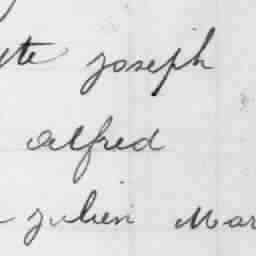 yte joseph
Alfred
julien Mar